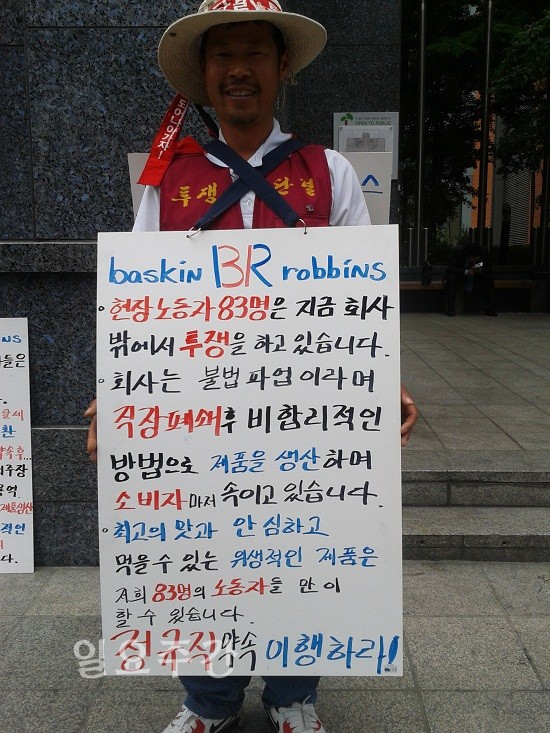 돌아가자!
OPEN TO PUBLIC
투쟁 단결
baskin BR robbins
· 현장노동자 83명은 지금 회사
밖에서 투쟁을 하고 있습니다.
· 회사는 불법파업이라며
직장폐쇄후 비합리적인
방법으로 제품을 생산하며
소비자마저 속이고 있습니다.
· 최고의 맛과 안심하고
먹을수 있는 위생적인 제품은
저희 83명의 노동자들 만이
할 수 있습니다.
정규직약속 이행하라!
일요주간
NS
들은